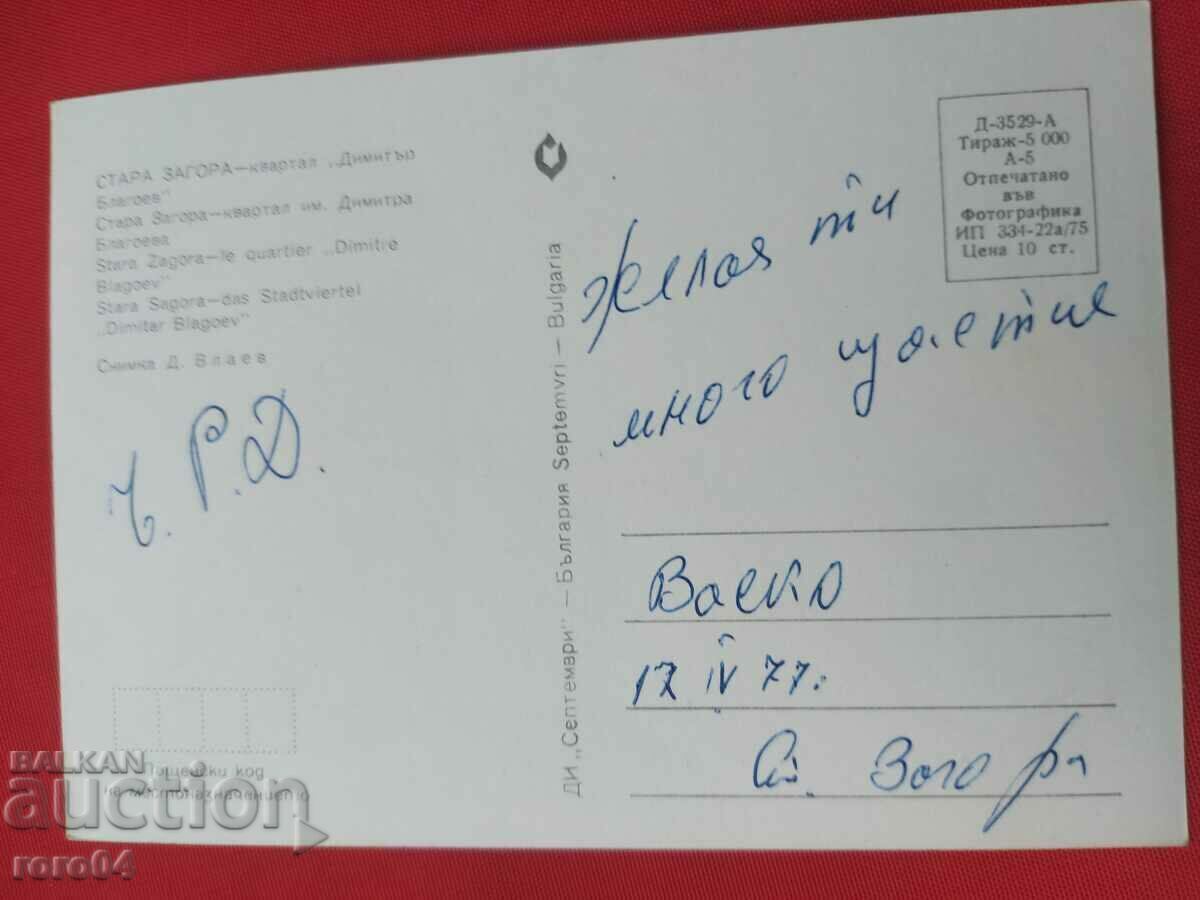 СТАРА ЗАГОРА—квартал „Димитър
Благоев"
Стара Загора—квартал им. Димитра
Благоева
Stara Zagora—le quartier „Dimitre
Blagoev"
Stara Sagora—das Stadtviertel
„Dimitar Blagoev"
Снимка Д. Влаев
Ч. Р.Д.
Пощенски код
на местоназначението
ДИ „Септември" — България Septemvri — Bulgaria
Д-3529-А
Тираж-5 000
А-5
Отпечатано
във
Фотографика
ИП 334-22а/75
Цена 10 ст.
Желая ти
много щастие
Васко
17 IV 77.
Ст. Загора
BALKAN
auction
roro04